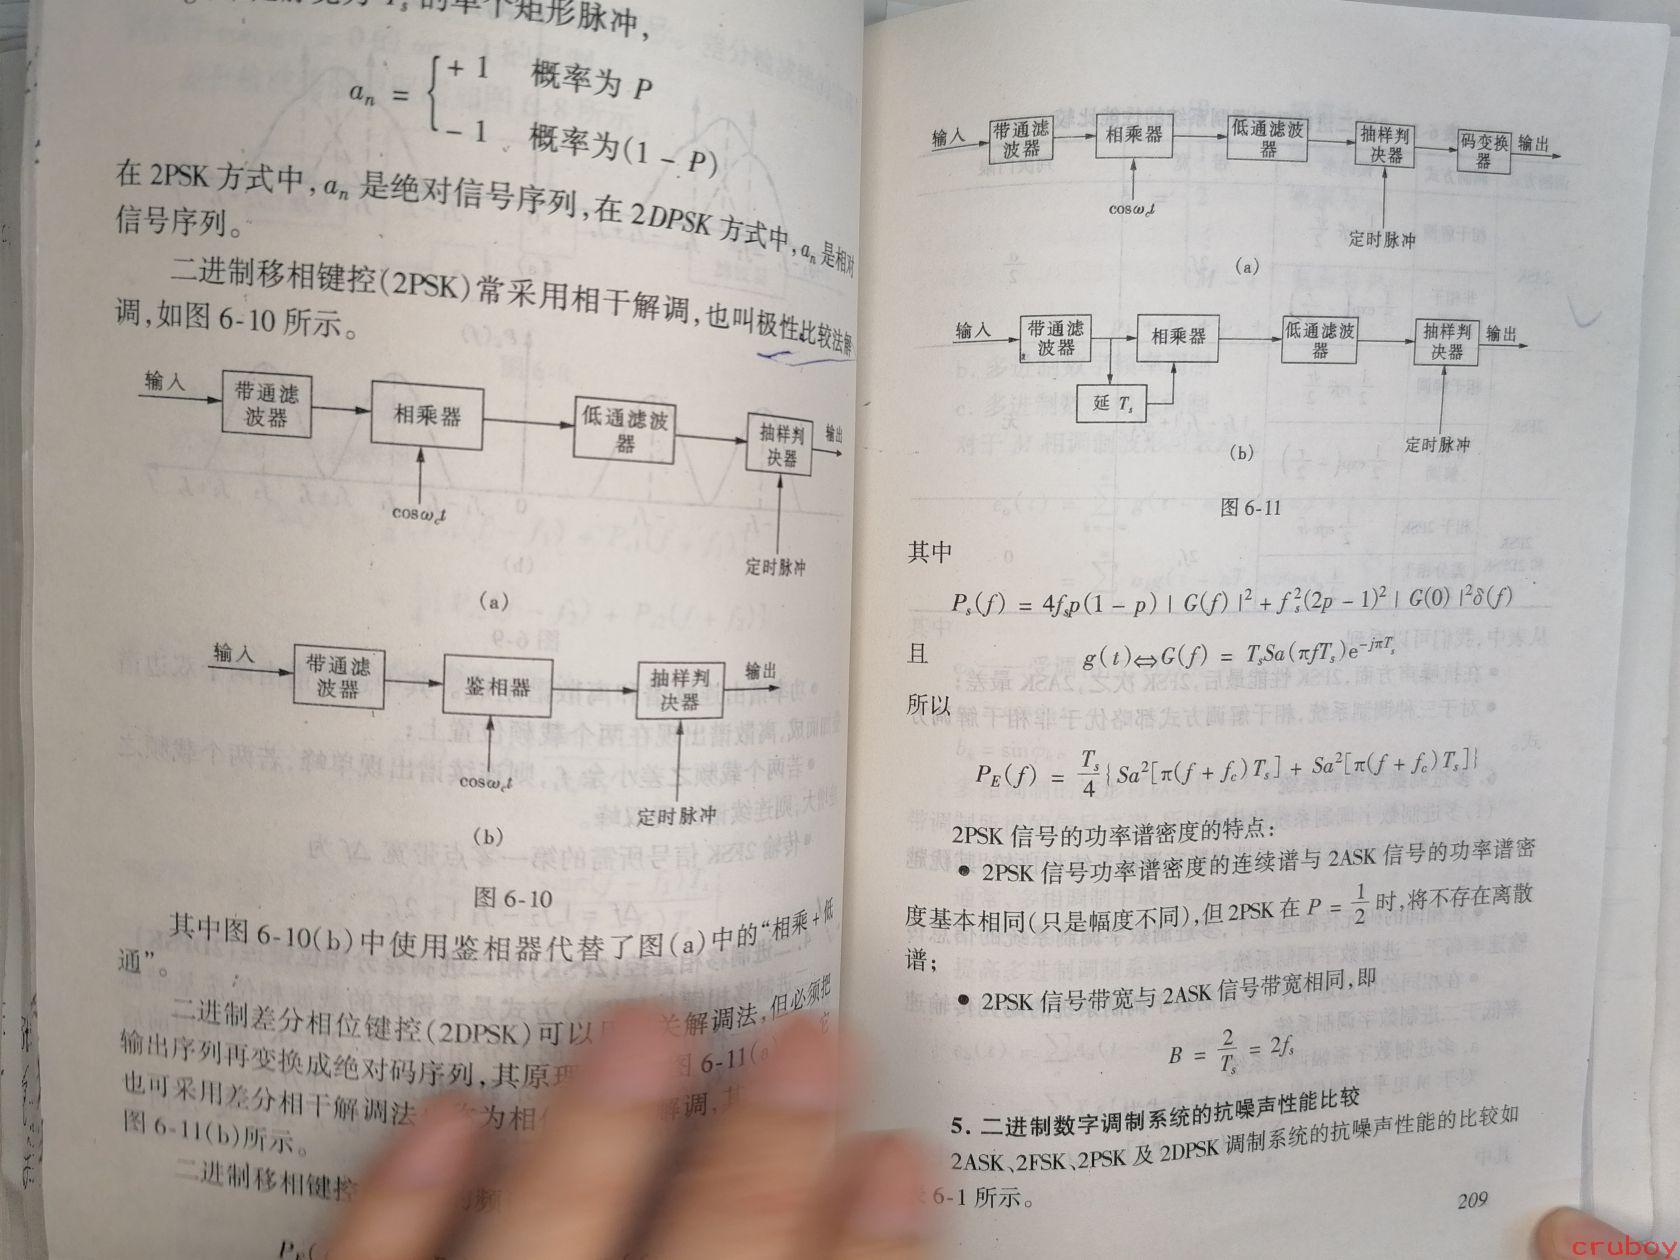 的单个矩形脉冲,
a_n = { +1 概率为 P
−1 概率为(1 − P)
在 2PSK 方式中, a_n 是绝对信号序列, 在 2DPSK 方式中, a_n 是相对
信号序列。
二进制移相键控(2PSK)常采用相干解调,也叫极性比较法解
调,如图 6-10 所示。
输入 带通滤波器 相乘器 低通滤波器 抽样判决器 输出
cosω_c t
定时脉冲
(a)
输入 带通滤波器 鉴相器 抽样判决器 输出
cosω_c t
定时脉冲
(b)
图 6-10
其中图 6-10(b)中使用鉴相器代替了图(a)中的“相乘+低
通”。
二进制差分相位键控(2DPSK)可以 解调法,但必须把
输出序列再变换成绝对码序列,其原理 图 6-11(a) 它
也可采用差分相干解调法 为相 解调,其
图 6-11(b)所示。
二进制移相键控
输入 带通滤波器 相乘器 低通滤波器 抽样判决器 码变换器 输出
cosω_c t
定时脉冲
(a)
输入 带通滤波器 相乘器 低通滤波器 抽样判决器 输出
延 T_s
定时脉冲
(b)
图 6-11
其中
P_s(f) = 4f_s p(1 − p) | G(f) |² + f_s²(2p − 1)² | G(0) |² δ(f)
且 g(t)⇔G(f) = T_s Sa(πfT_s)e^{−jπT_s}
所以
P_E(f) = T_s/4 { Sa²[π(f + f_c)T_s] + Sa²[π(f + f_c)T_s]}
2PSK 信号的功率谱密度的特点:
● 2PSK 信号功率谱密度的连续谱与 2ASK 信号的功率谱密
度基本相同(只是幅度不同),但 2PSK 在 P = 1/2 时,将不存在离散
谱;
● 2PSK 信号带宽与 2ASK 信号带宽相同,即
B = 2/T_s = 2f_s
5. 二进制数字调制系统的抗噪声性能比较
2ASK、2FSK、2PSK 及 2DPSK 调制系统的抗噪声性能的比较如
6-1 所示。
209
cruboy